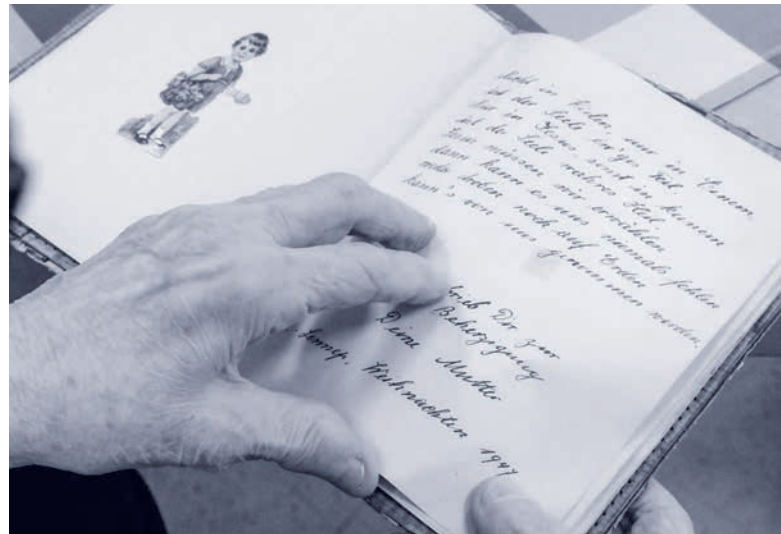 nicht in Vielen, nur in Einem
ist der Seele ew'ges Teil
Nur in Jesus sonst in keinem
ist der Seele wahres Heil.
Ihn müssen wir erwählen
dann kann er uns niemals fehlen
weder droben noch auf Erden
kann's von uns genommen werden.
schrieb Dir zur
Beherzigung
Deine Mutter
Lennep. Weihnachten 1947